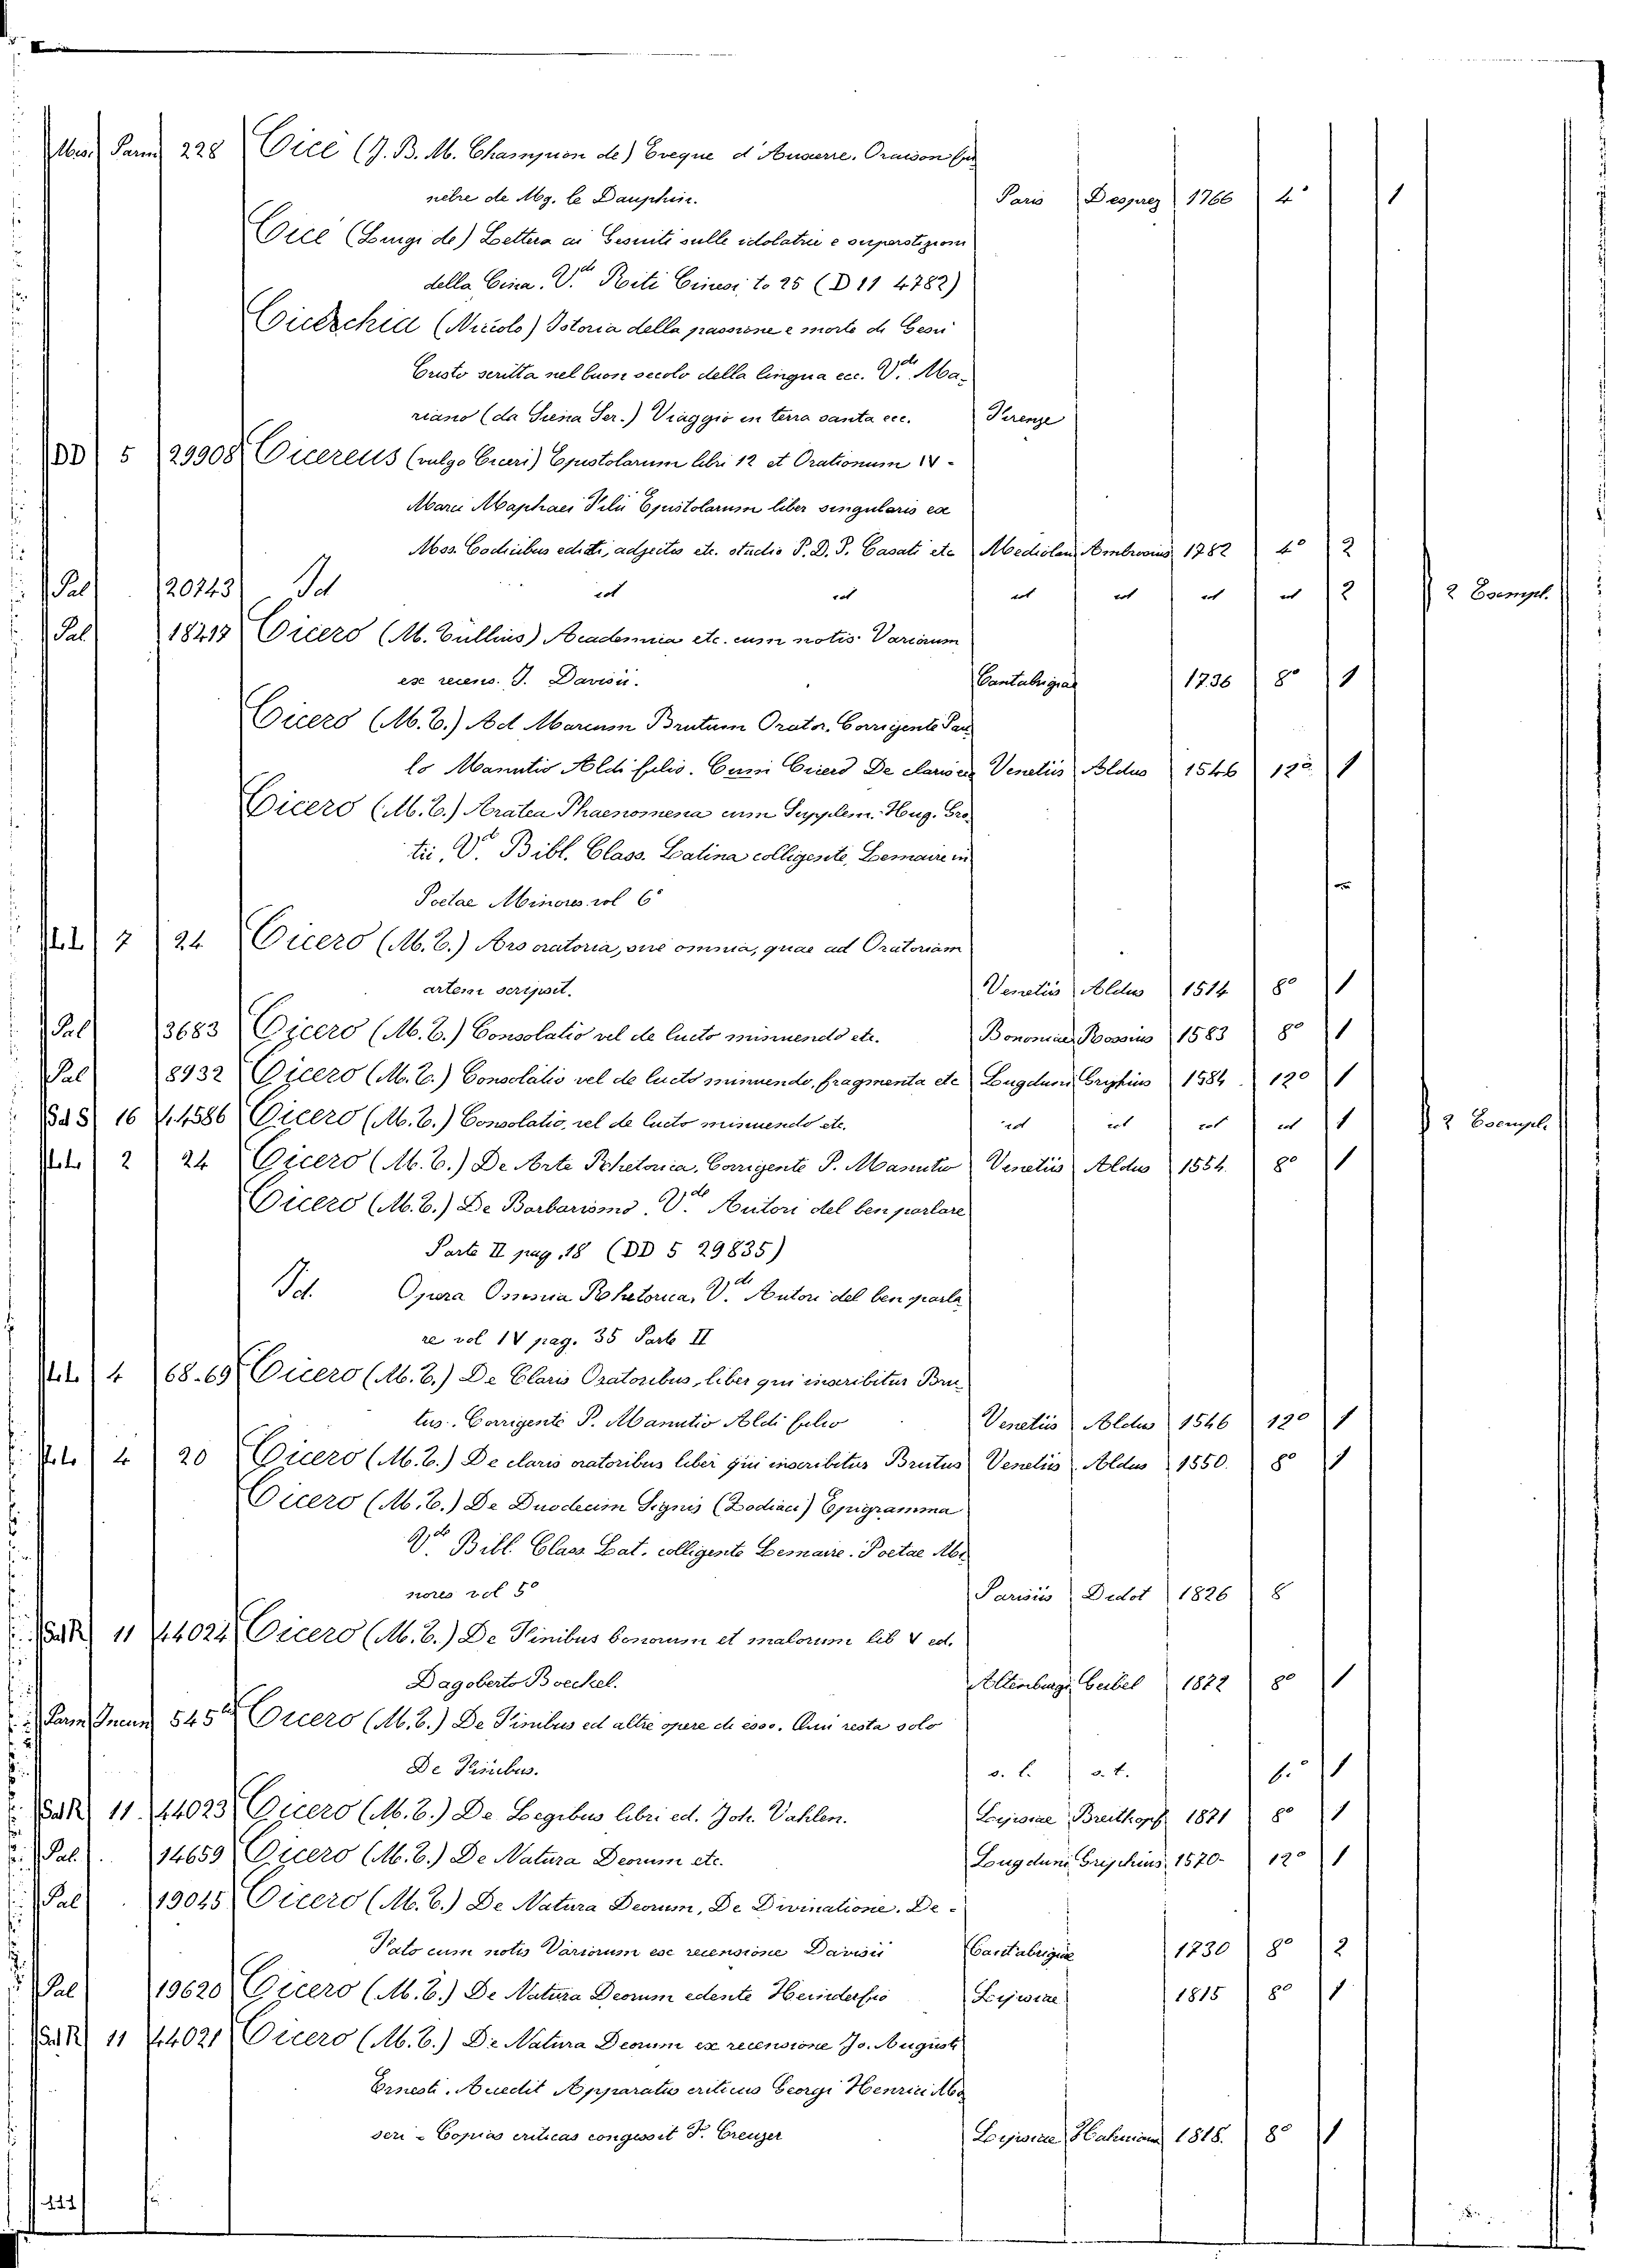 Misc. Parm 228 Cicé (J. B. M. Champion de) Eveque d'Auxerre. Oraison fu
nebre de Mg. le Dauphin. Paris Desprez 1766 4° 1
Cicé (Luigi de) Lettera ai Gesuiti sulle idolatrie e superstizioni
della Cina. V.de Riti Cinesi, to 25 (D 11 4782)
Cicerchia (Niccolo) Istoria della passione e morte di Gesù
Cristo scritta nel buon secolo della lingua ecc. V.de Ma-
riano (da Siena Ser.) Viaggio in terra santa ecc. Firenze
DD 5 29908 Cicereius (vulgo Ciceri) Epistolarum libri 12 et Orationum IV -
Marci Maphaei Filii Epistolarum liber singularis ex
Mss. Codicibus editi, adjectis etc. studio P. D. P. Casati etc Mediolani Ambrosius 1782 4° 2
Pal 20743 Id id id id id id id 2 2 Esempl.
Pal 18217 Cicero (M. Tullius) Academica etc. cum notis Variorum
ex recens. J. Davisii. Cantabrigiae 1736 8° 1
Cicero (M. T.) Ad Marcum Brutum Orator. Corrigente Pau
lo Manutio Aldi filio. Cum Cicero De claris etc Venetiis Aldus 1546 12° 1
Cicero (M. T.) Aratea Phaenomena cum Supplem. Hug. Gro
tii, V.de Bibl. Class. Latina colligente, Lemaire in
Poetae Minores vol 6°
7 24 Cicero (M. T.) Ars oratoria, sive omnia, quae ad Oratoriam
artem scripsit. Venetiis Aldus 1514 8° 1
Pal 3683 Cicero (M. T.) Consolatio vel de luctu minuendo etc. Bononiae Rossius 1583 8° 1
Pal 8932 Cicero (M. T.) Consolatio vel de luctu minuendo, fragmenta etc Lugduni Gryphius 1584 12° 1
Sal S 16 44586 Cicero (M. T.) Consolatio, vel de luctu minuendo etc. id id id id 1 2 Esempl.
2 24 Cicero (M. T.) De Arte Rhetorica, Corrigente P. Manutio Venetiis Aldus 1554. 8° 1
Cicero (M. T.) De Barbarismo. V.de Autori del ben parlare
Parte II pag. 18 (DD 5 29835)
Id. Opera Omnia Rhetorica, V.de Autori del ben parla
re vol IV pag. 35 Parte II
4 68-69 Cicero (M. T.) De Claris Oratoribus, liber qui inscribitur Bru-
tus. Corrigente P. Manutio Aldi filio Venetiis Aldus 1546 12° 1
4 20 Cicero (M. T.) De claris oratoribus liber qui inscribitur Brutus Venetiis Aldus 1550. 8° 1
Cicero (M. T.) De Duodecim Signis (Zodiaci) Epigramma
V.de Bibl. Class. Lat. colligente Lemaire. Poetae Mi
nores vol 5° Parisiis Didot 1826 8
Sal R 11 44024 Cicero (M. T.) De Finibus bonorum et malorum lib V ed.
Dagoberto Boeckel. Altenburgi Geibel 1872 8° 1
Parm Incun 545 Cicero (M. T.) De Finibus ed altre opere di esso. Qui resta solo
De Finibus. s. l. s. t. f.° 1
Sal R 11 44023 Cicero (M. T.) De Legibus libri ed. Joh. Vahlen. Lipsiae Breitkopf 1871 8° 1
Pal. 14659 Cicero (M. T.) De Natura Deorum etc. Lugduni Gryphius 1570 12° 1
Pal 19045 Cicero (M. T.) De Natura Deorum, De Divinatione. De -
Fato cum notis Variorum ex recensione Davisii Cantabrigiae 1730 8° 2
Pal 19620 Cicero (M. T.) De Natura Deorum edente Heindorfio Lipsiae 1815 8° 1
Sal R 11 44021 Cicero (M. T.) De Natura Deorum ex recensione Jo. Augusti
Ernesti. Accedit Apparatus criticus Georgi Henrici Mo
seri - Copias criticas congessit F. Creuzer Lipsiae Hahniana 1818. 8° 1